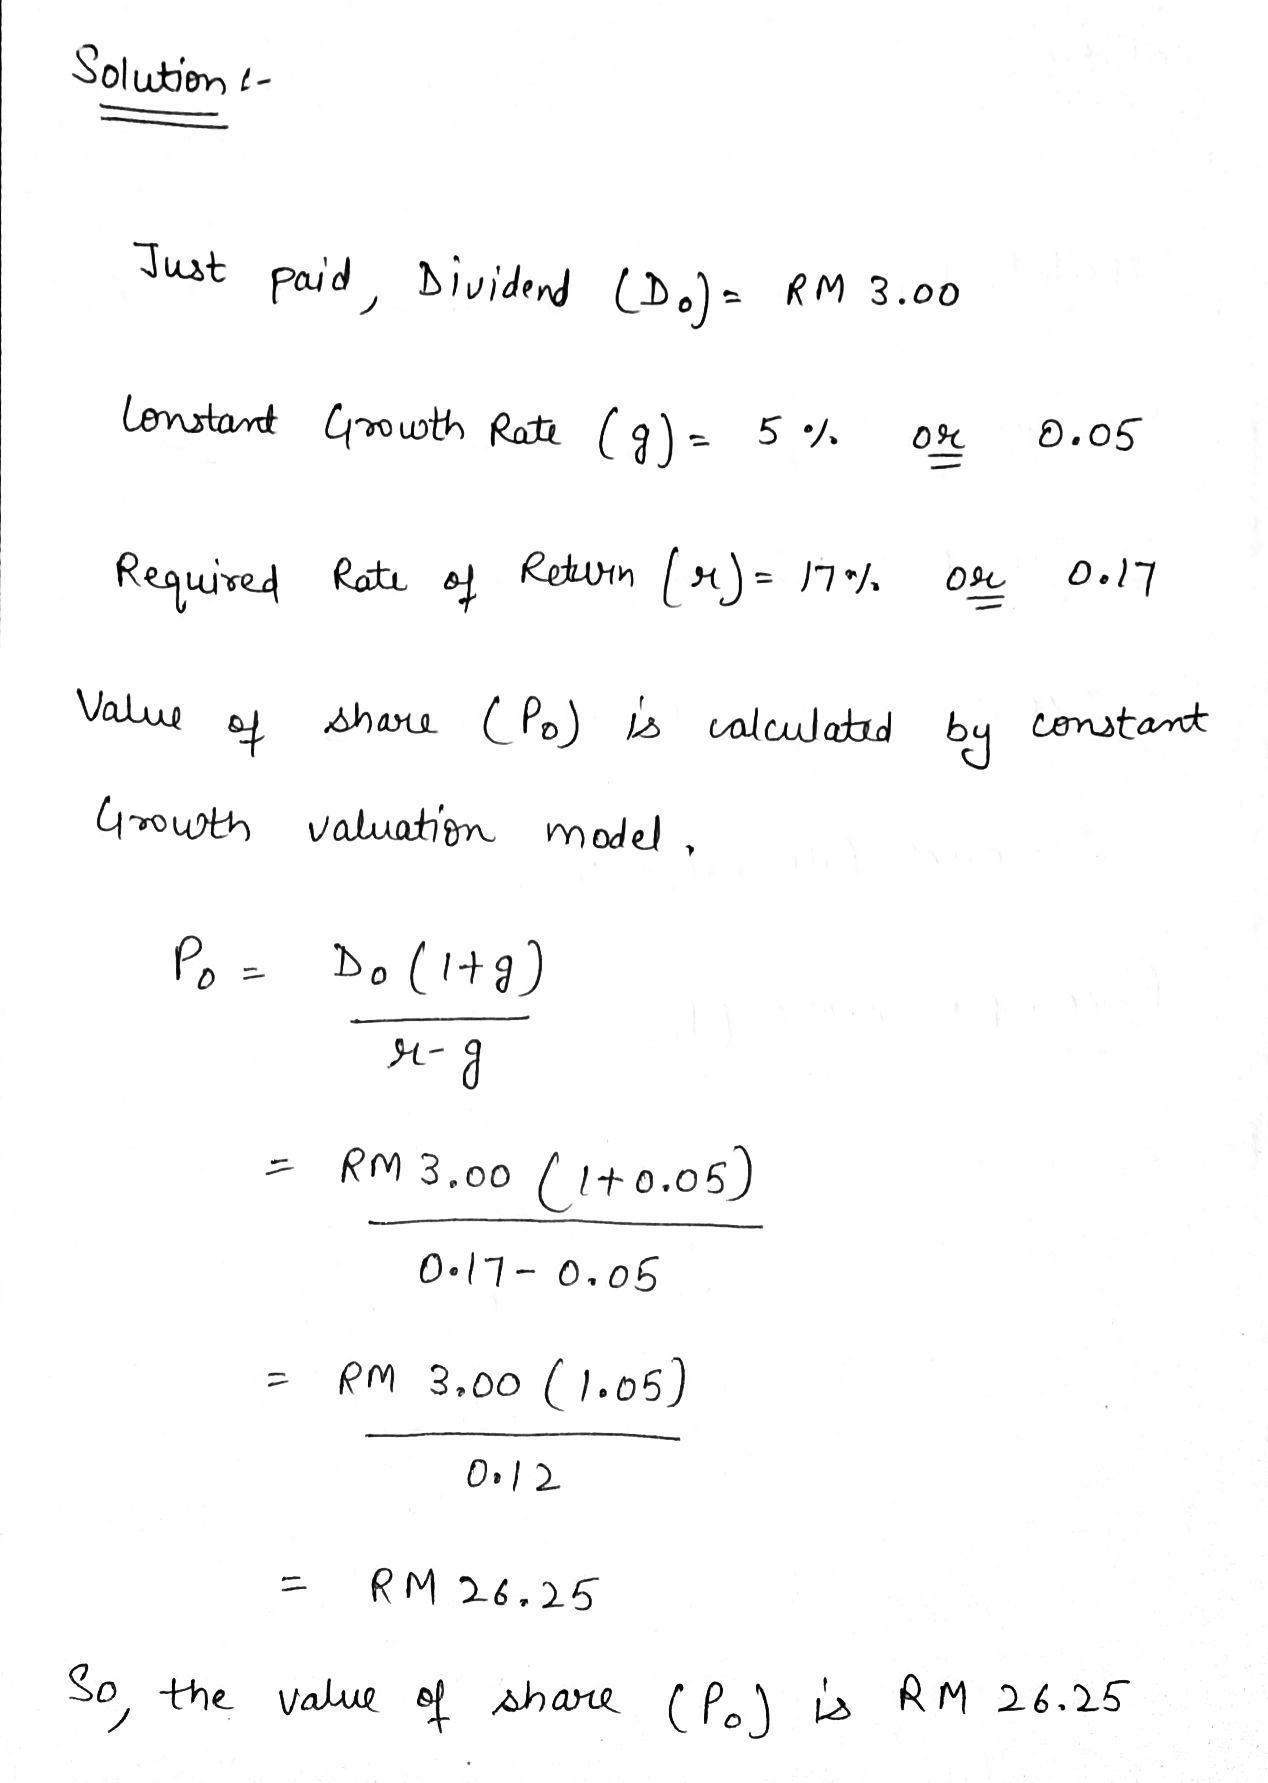 Solution :-
Just paid, Dividend (D0) = RM 3.00
Constant Growth Rate (g) = 5 % or 0.05
Required Rate of Return (r) = 17% or 0.17
Value of share (P0) is calculated by constant
Growth valuation model,
P0 = D0 (1+g)
r-g
= RM 3.00 (1+0.05)
0.17 - 0.05
= RM 3.00 (1.05)
0.12
= RM 26.25
So, the value of share (P0) is RM 26.25